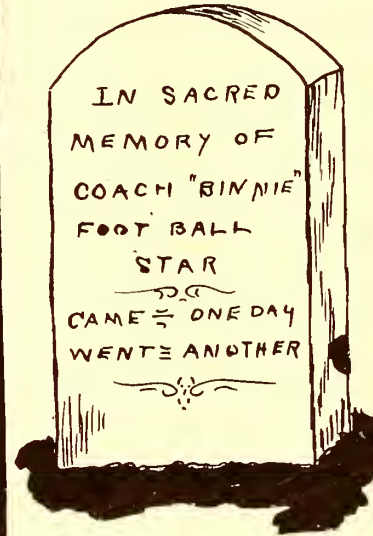 IN SACRED
MEMORY OF
COACH "BINNIE"
FOOT BALL
STAR
CAME = ONE DAY
WENT = ANOTHER